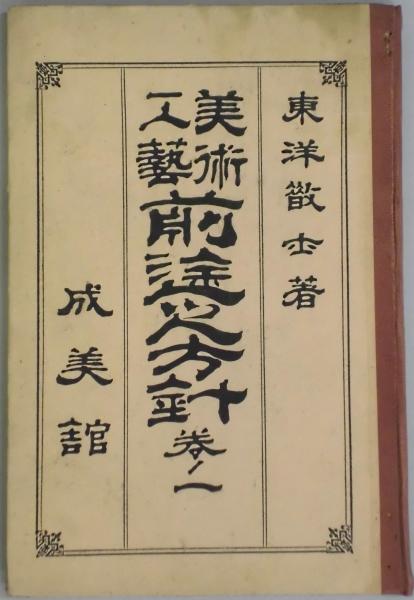 東洋散士著
美術
工藝
前途之方針
巻ノ一
成美館